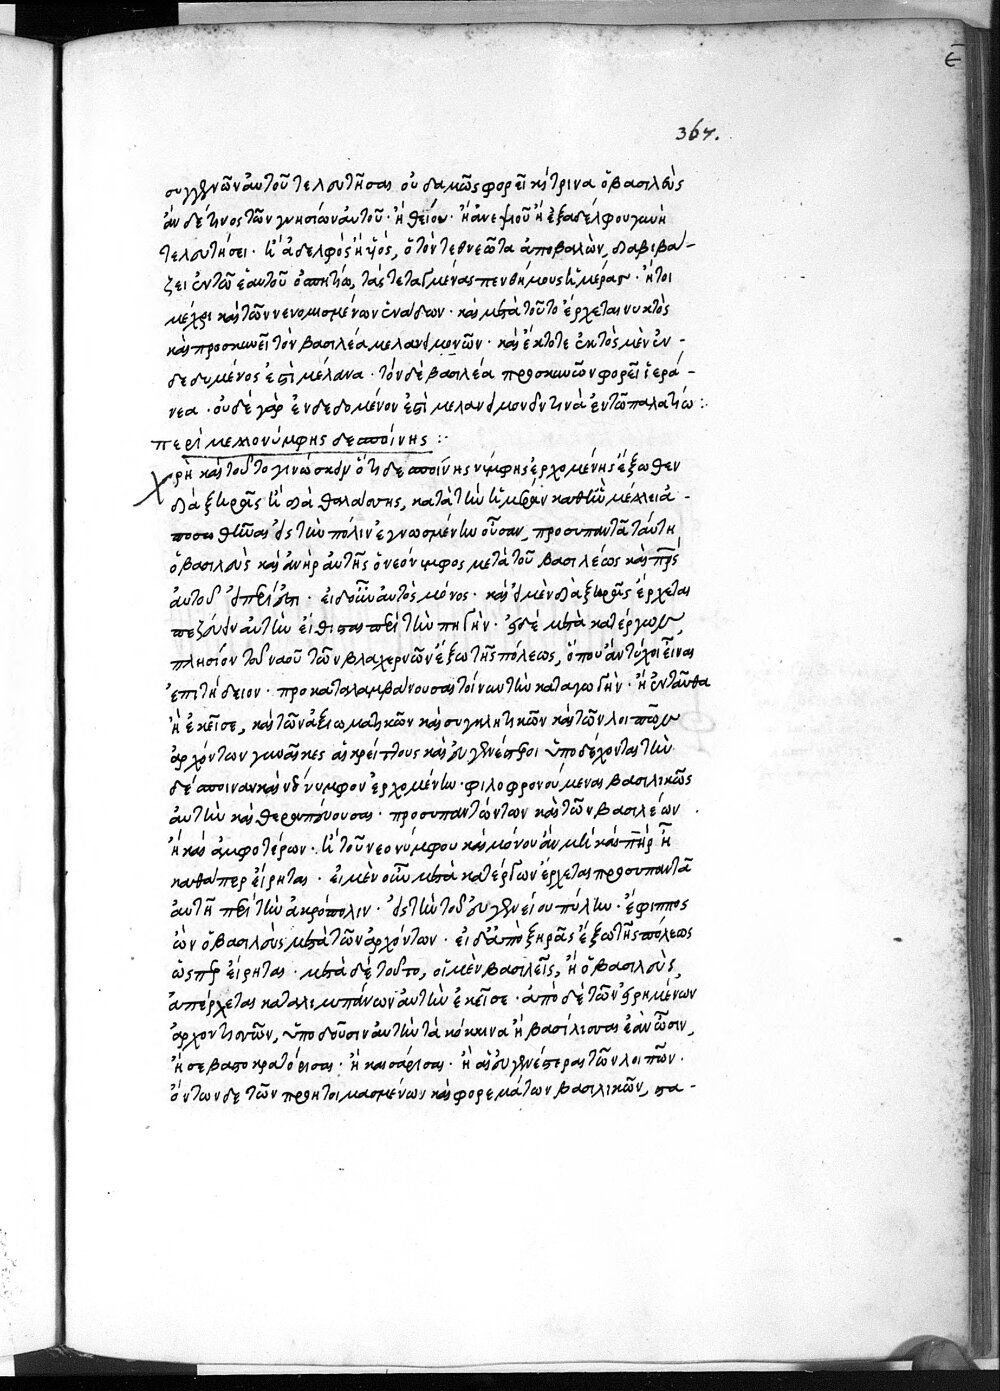 ε
367.
συγγενῶν αὐτοῦ τελευτήσας οὐδαμῶς φορεῖ κίτρινα ὁ βασιλεὺς
ἂν δέ τινος τῶν γνησίων αὐτοῦ· ἢ θείου· ἢ ἀνεψιοῦ ἢ ἐξαδέλφου γυνὴ
τελευτήσει· ἢ ἀδελφὸς ἢ υἱός, ὁ τὸν τεθνεῶτα ἀποβαλών, διαβιβά-
ζει ἐν τῶ ἑαυτοῦ ὀσπητίω, τὰς τεταγμένας πενθήμους ἡμέρας· ἤτοι
μέχρι καὶ τῶν νενομισμένων ἐννάδων· καὶ μετὰ τοῦτο ἔρχεται νυκτὸς
καὶ προσκυνεῖ τὸν βασιλέα μελανειμονῶν· καὶ ἔκτοτε ἐκτὸς μὲν ἐν-
δεδυμένος ἐστὶ μέλανα· τὸν δὲ βασιλέα προσκυνῶν φορεῖ ἠερά-
νεα· οὐδὲ γὰρ ἐνδεδομένον ἐστὶ μελανειμονεῖν τινὰ ἐν τῶ παλατίω:.
περὶ μελλονύμφης δεσποίνης:·
Χρὴ καὶ τοῦτο γινώσκειν ὅτι δεσποίνης νύμφης ἐρχομένης ἔξωθεν
διὰ ξηρᾶς ἢ διὰ θαλάσσης, κατὰ τὴν ἡμέραν καθ' ἣν μέλλει ἀ-
ποσωθῆναι εἰς τὴν πόλιν ἐγνωσμένην οὖσαν, προσυπαντᾶ ταύτη
ὁ βασιλεὺς καὶ ἀνὴρ αὐτῆς ὁ νεόνυμφος μετὰ τοῦ βασιλέως καὶ πρς
αὐτοῦ εἰ περίεστι· εἰ δ' οὖν αὐτὸς μόνος· καὶ εἰ μὲν διὰ ξηρᾶς ἔρχεται
πεζεύειν αὐτὴν εἴθισται περὶ τὴν πηγήν· εἰ δὲ μετὰ κατέργων,
πλησίον τοῦ ναοῦ τῶν βλαχερνῶν ἔξω τῆς πόλεως, ὅπου ἂν τύχοι εἶναι
ἐπιτήδειον· προκαταλαμβάνουσαι τοίνυν τὴν καταγωγήν· ἢ ἐνταῦθα
ἢ ἐκεῖσε, καὶ τῶν ἀξιωματικῶν καὶ συγκλητικῶν καὶ τῶν λοιπῶν
ἀρχόντων γυναῖκες αἱ κρείττους καὶ εὐγενέστεροι ὑποδέχονται τὴν
δέσποιναν καὶ νεόνυμφον ἐρχομένην· φιλοφρονούμεναι βασιλικῶς
αὐτὴν καὶ θεραπεύουσαι· προσυπαντώντων καὶ τῶν βασιλέων
ἢ καὶ ἀμφοτέρων· ἢ τοῦ νεονύμφου καὶ μόνου ἂν μὴ καὶ πὴρ ἦ
καθάπερ εἴρηται· εἰ μὲν οὖν μετὰ κατέργων ἔρχεται προσυπαντᾶ
αὐτῆ περὶ τὴν ἀκρόπολιν· εἰς τὴν τοῦ εὐγενείου πύλην· ἔφιππος
ὢν ὁ βασιλεὺς μετὰ τῶν ἀρχόντων· εἰ δ' ἀπὸ ξηρᾶς ἔξω τῆς πόλεως
ὥσπερ εἴρηται· μετὰ δὲ τοῦτο, οἱ μὲν βασιλεῖς, ἢ ὁ βασιλεὺς,
ἀπέρχεται καταλιμπάνων αὐτὴν ἐκεῖσε· ἀπὸ δὲ τῶν εἰρημένων
ἀρχοντισσῶν, ὑποδοῦσιν αὐτὴν τὰ κόκκινα ἢ βασίλισσαι ἐὰν ὦσιν,
ἢ σεβαστοκρατόρισσαι· ἢ καισάρισσαι· ἢ αἱ εὐγενέστεραι τῶν λοιπῶν·
ὄντων δὲ τῶν προητοιμασμένων καὶ φορεμάτων βασιλικῶν, πα-